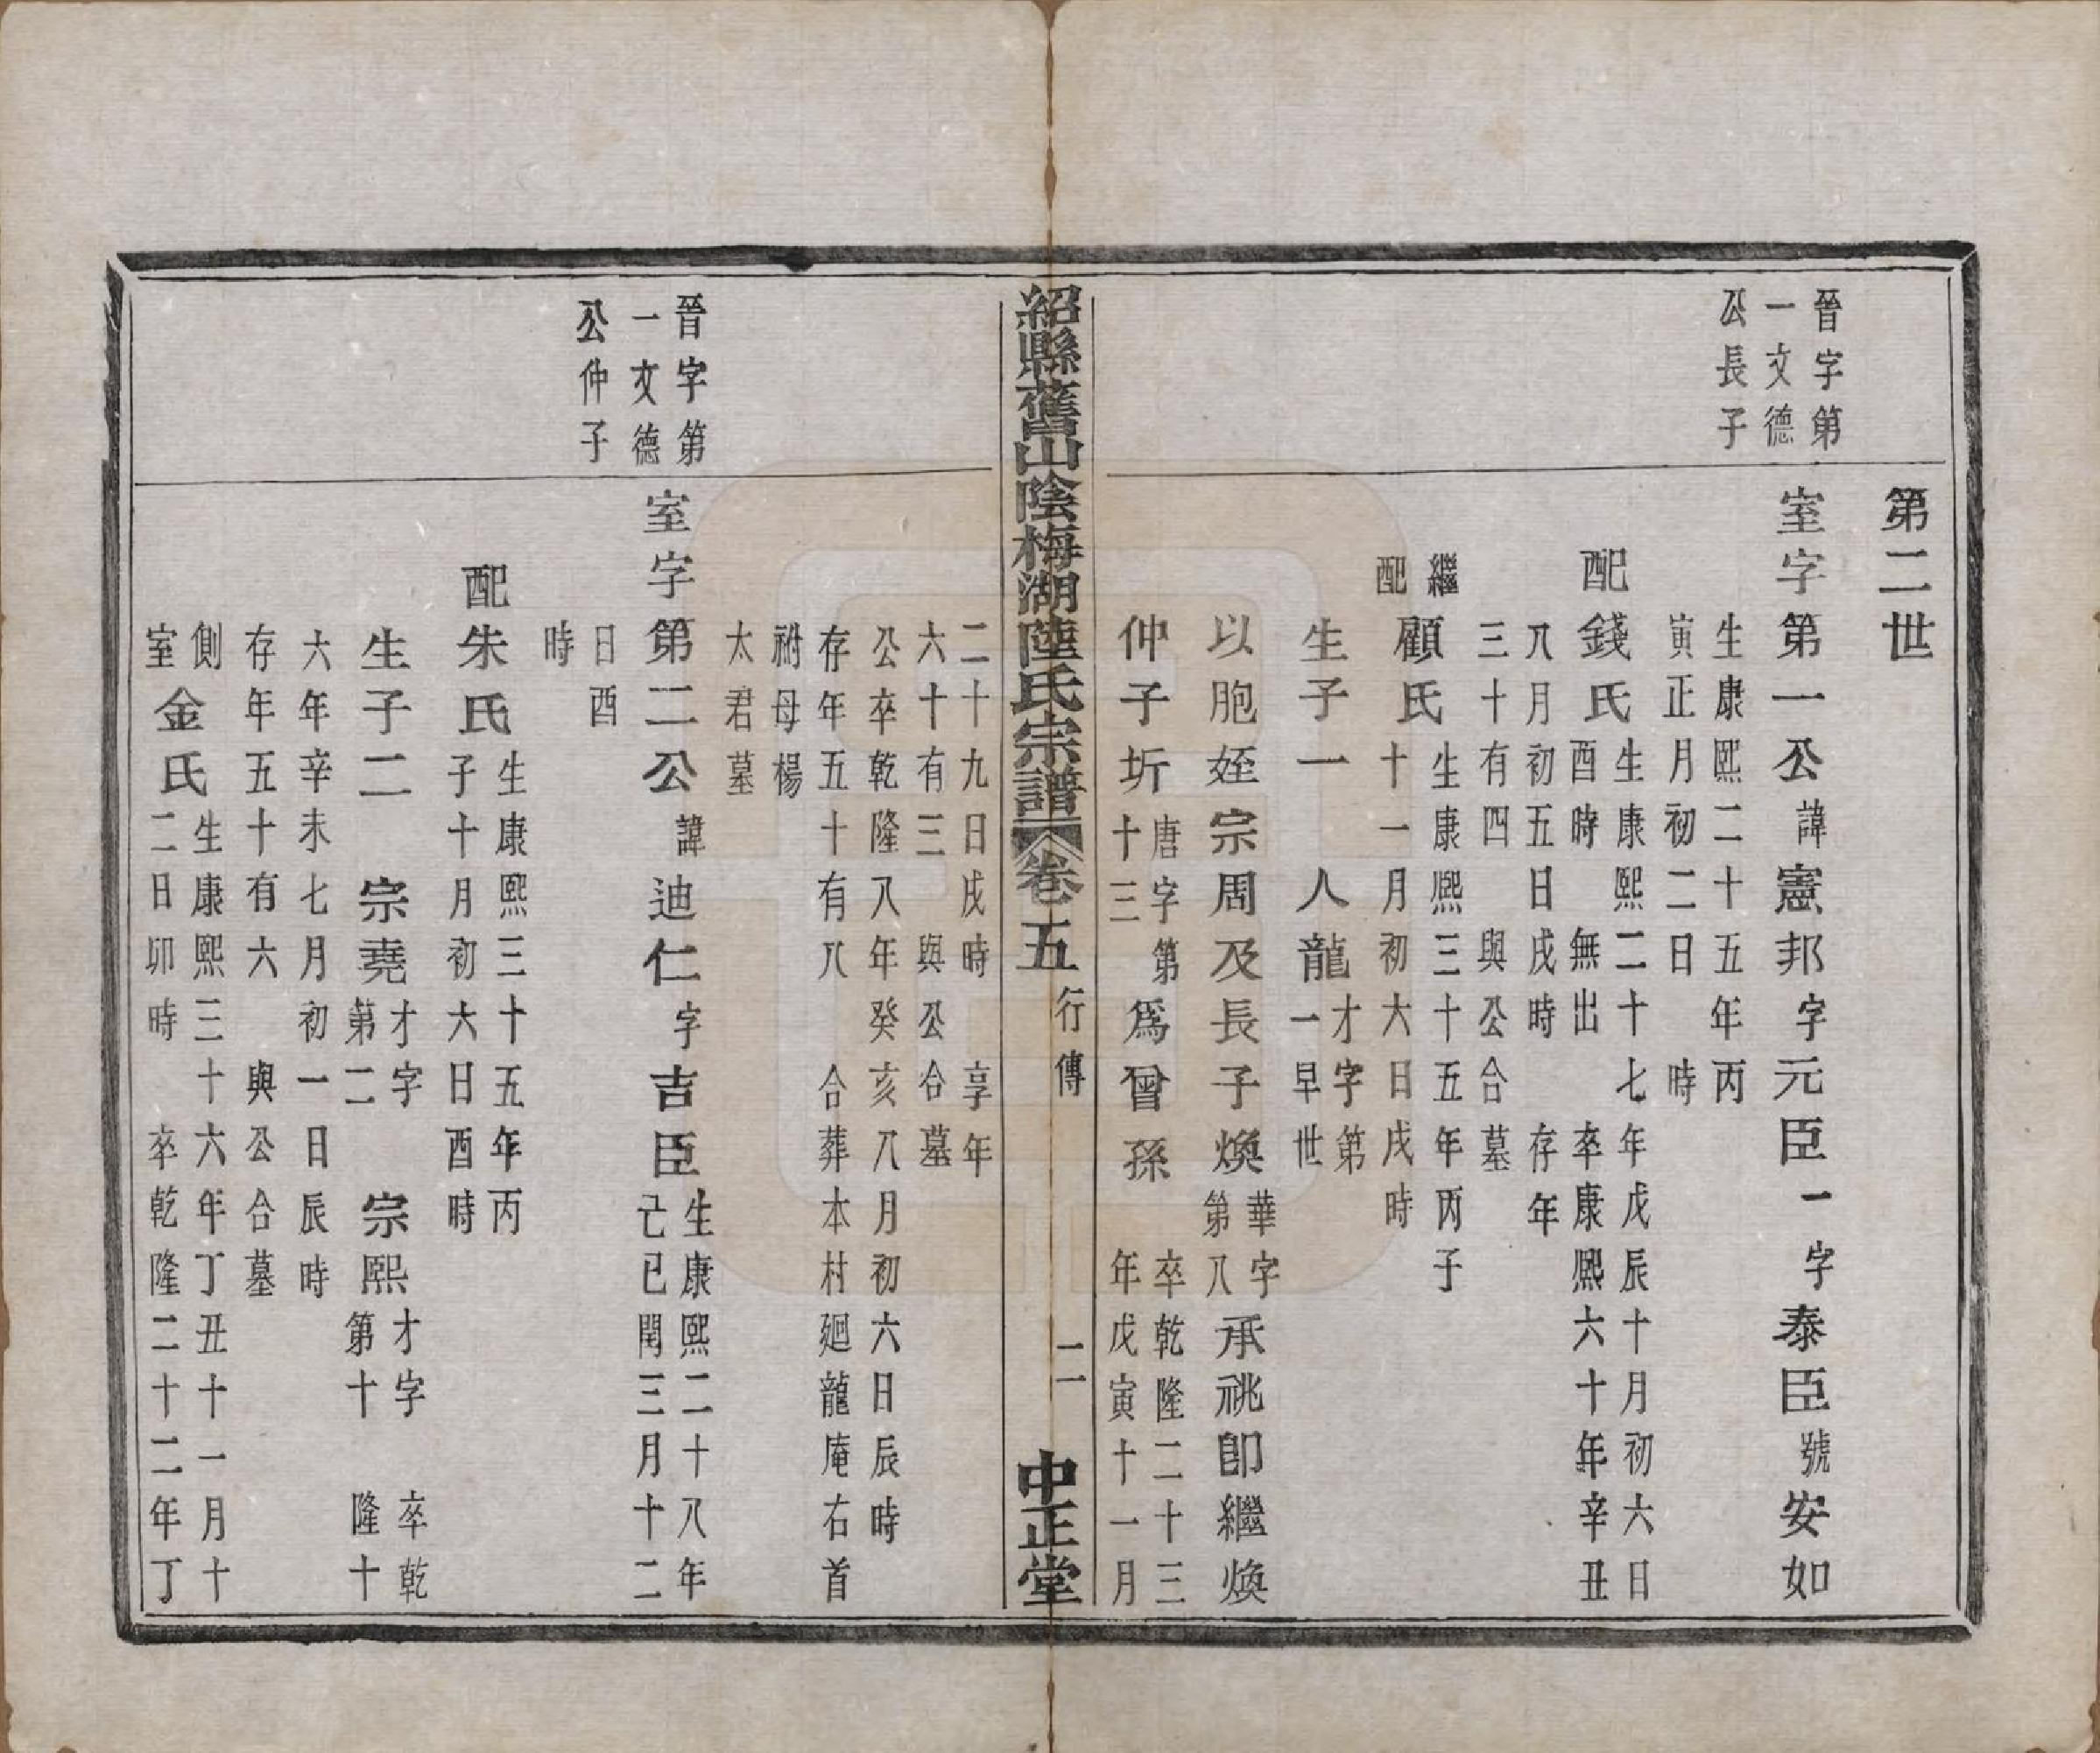 第二世
晉字第
一文德
公長子
室字第一公諱憲邦字元臣一字泰臣號安如
生康熙二十五年丙
寅正月初二日時
配錢氏
生康熙二十七年戊辰十月初六日
酉時無出卒康熙六十年辛丑
八月初五日戌時存年
三十有四與公合墓
繼
配
顧氏
生康熙三十五年丙子
十一月初六日戌時
生子一人龍
才字第
一早世
以胞姪宗周及長子煥
華字
第八
承祧卽繼煥
仲子圻
唐字第
十三
爲曾孫
卒乾隆二十三
年戊寅十一月
紹縣舊山陰梅湖陸氏宗譜
卷五
行傳
二
中正堂
二十九日戌時享年
六十有三與公合墓
公卒乾隆八年癸亥八月初六日辰時
存年五十有八合葬本村廻龍庵右首
祔母楊
太君墓
晉字第
一文德
公仲子
室字第二公諱迪仁字吉臣
生康熙二十八年
己巳閏三月十二
日酉
時
配朱氏
生康熙三十五年丙
子十月初六日酉時
生子二宗堯
才字
第二
宗熙
才字
第十
卒乾
隆十
六年辛未七月初一日辰時
存年五十有六與公合墓
側
室
金氏
生康熙三十六年丁丑十一月十
二日卯時卒乾隆二十二年丁